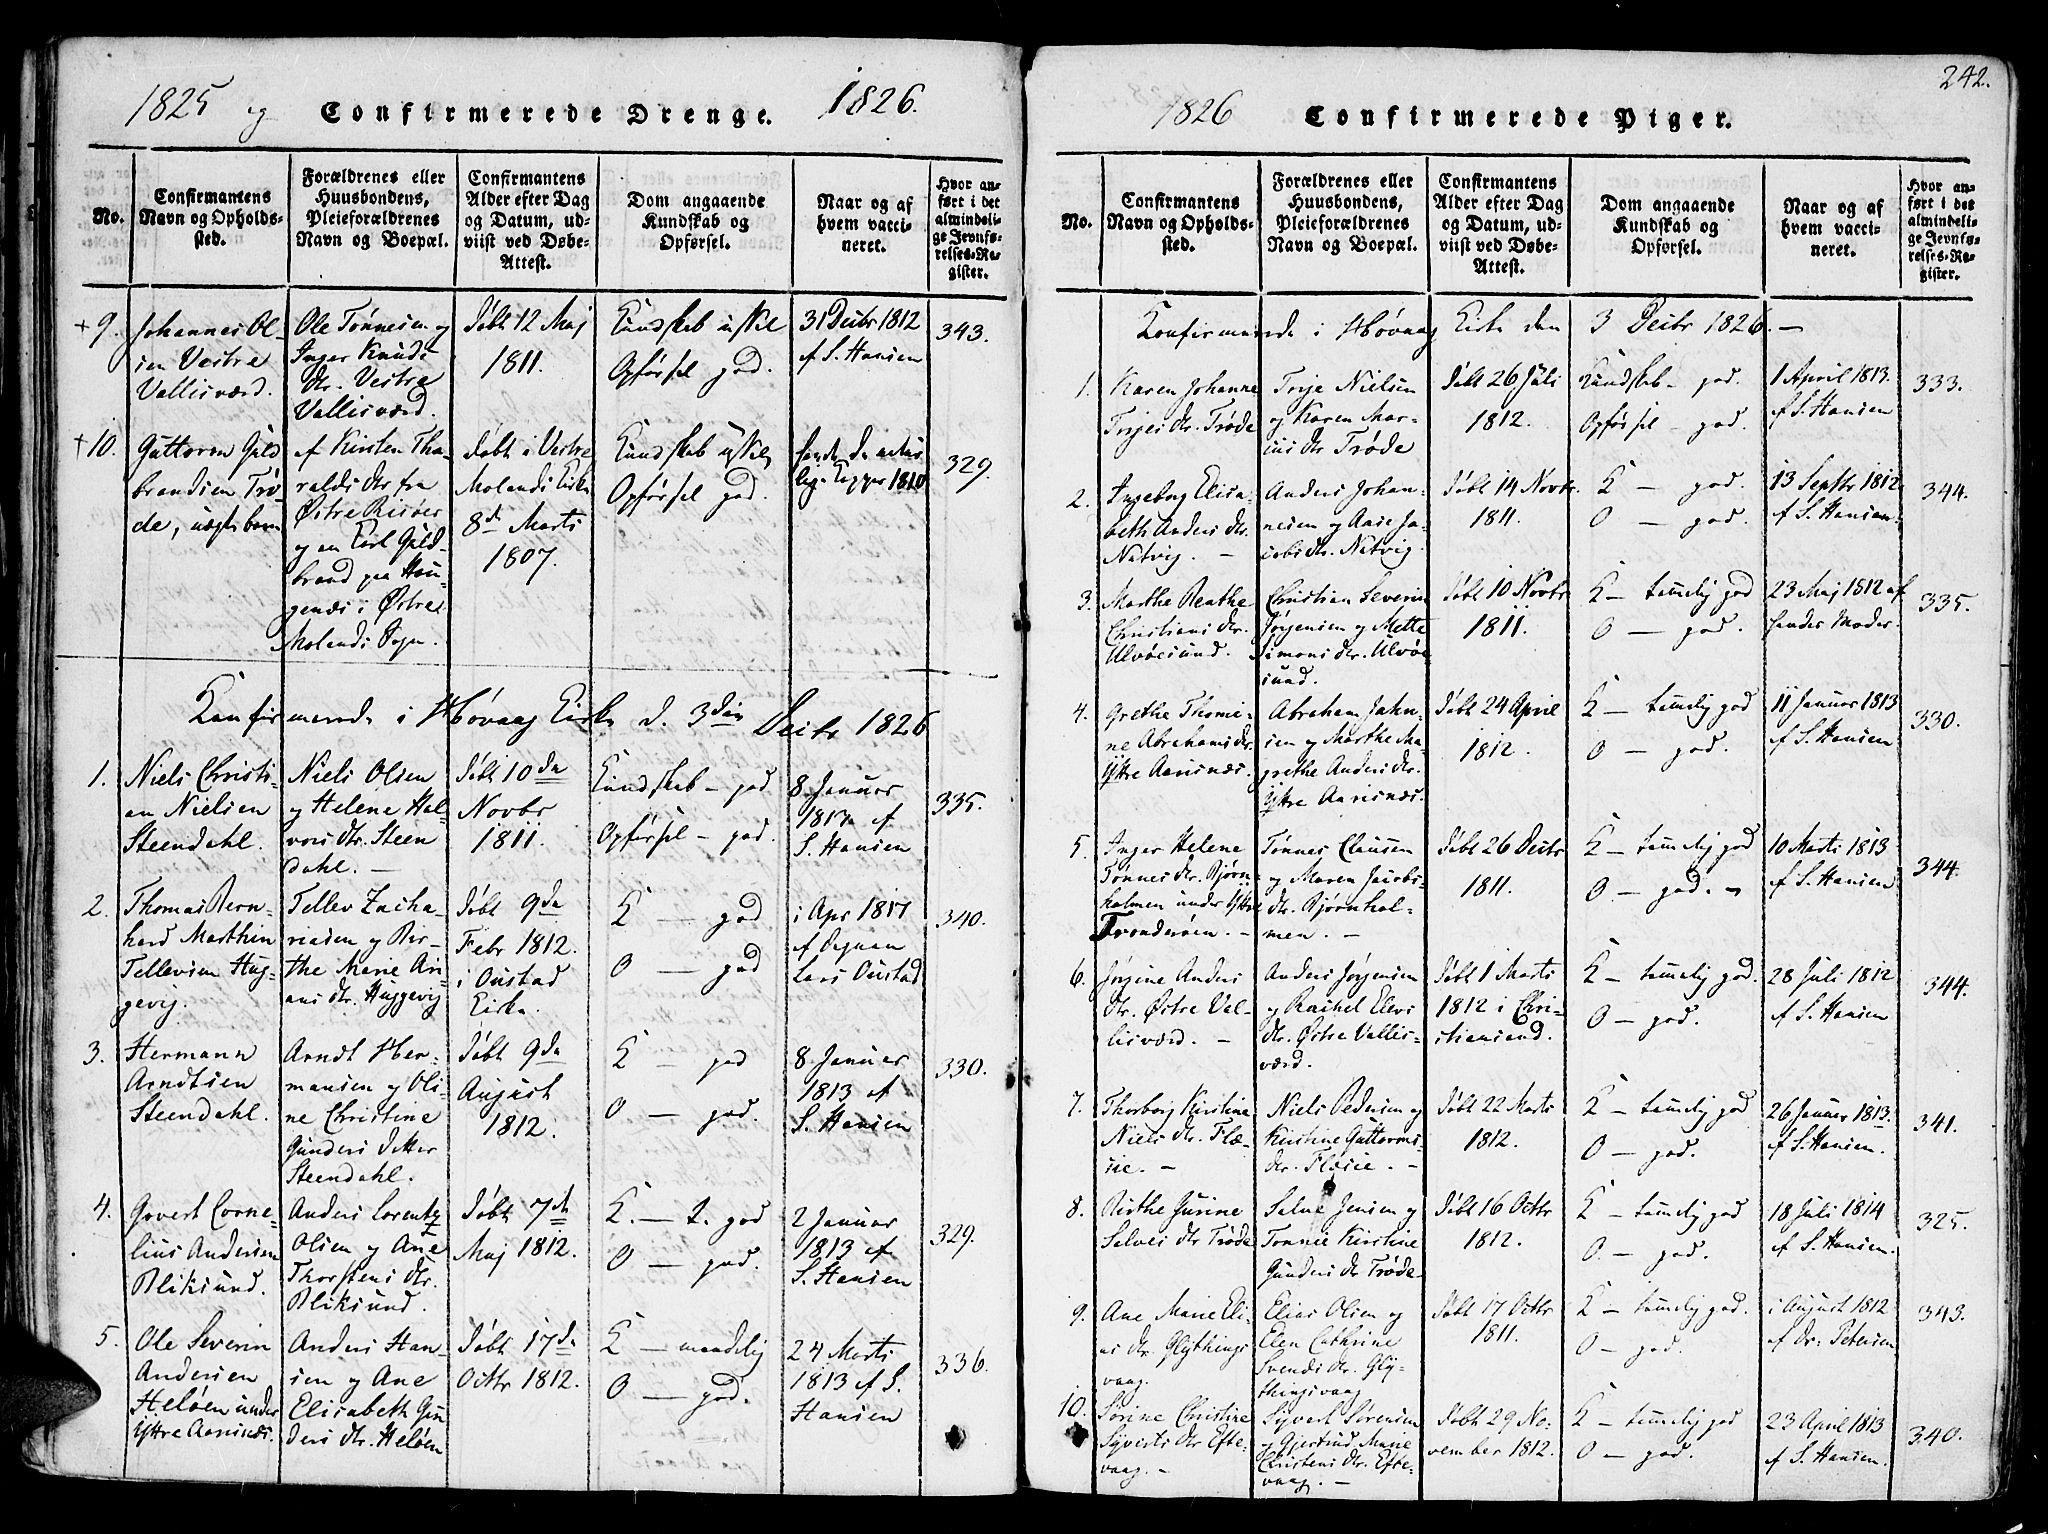 1825 og Confirmerede Drenge. 1826.
No.
Confirmantens
Navn og Opholds-
sted.
Forældrenes eller
Huusbondens,
Pleieforældrenes
Navn og Boepæl.
Confirmantens
Alder efter Dag
og Datum, ud-
viist ved Døbe-
Attest.
Dom angaaende
Kundskab og
Opførsel.
Naar og af
hvem vacci-
neret.
Hvor an-
ført i det
almindeli-
ge Jevnfø-
relses-Re-
gister.
+9.
Johannes Ol-
sen Vestre
Vallisværd.
Ole Tønnesen og
Inger Knuds
dtr. Vestre
Vallisværd.
Døbt 12 Maj
1811.
Kundskab
Opførsel god.
31 Decbr 1812
af S. Hansen
343.
+10.
Guttorm Guld
brandsen Trø-
de, uægte barn
af Kirsten Tha-
ralds dtr fra
Østre Risøer
og en Karl Guld-
brand paa Hou-
genæs i Østre
Molands Sogn.
Døbt i Vestre
Molands Kirke
8de Marts
1807.
Kundskab
Opførsel god.
havde de natur
lige Kopper 1810
329.
Konfirmerede i Høvaag Kirke d. 3die Decbr 1826
1.
Niels Christi-
an Nielsen
Steendahl.
Niels Olsen
og Helene Hal-
vors dtr. Steen
dahl. —
Døbt 10de
Novbr
1811.
Kundskab – god
Opførsel – god.
8 Januar
1813 af
S. Hansen
335.
2.
Thomas Bern-
hard Marthin
Tellevsen Hug-
gevig.
Tellev Zacha-
riasen og Bir-
the Marie Ari-
ans dtr. Huggevig
Døbt 9de
Febr 1812.
i Oustad
Kirke.
K — god
O — god
i Apr 1817
af Degnen
Lars Oustad
340.
3.
Hermann
Arndtsen
Steendahl.
Arndt Her-
mansen og Oli-
ne Christine
Gunders Datter
Steendahl.
Døbt 9de
August
1812.
K — god
O — god.
8 Januar
1813 af
S. Hansen
330.
4.
Govert Corne-
lius Andersen
Bliksund.
Anders Lorentz
Olsen og Ane
Thorstens dtr.
Bliksund.
Døbt 7de
Maj 1812.
K. — t. god
O — god.
2 Januar
1813 af
S. Hansen
329.
5.
Ole Severin
Andersen
Heløen under
Yttre Aarisnæs.
Anders Han-
sen og Ane
Elisabeth Gun
ders dtr. Heløen
Døbt 17de
Octbr 1812.
K — maadelig
O — god.
24 Marts
1813 af S.
Hansen
336.
242.
1826 Confirmerede Piger.
No.
Confirmantens
Navn og Opholds-
sted.
Forældrenes eller
Huusbondens,
Pleieforældrenes
Navn og Boepæl.
Confirmantens
Alder efter Dag
og Datum, ud-
viist ved Døbe-
Attest.
Dom angaaende
Kundskab og
Opførsel.
Naar og af
hvem vacci-
neret.
Hvor an-
ført i det
almindeli-
ge Jevnfø-
relses-Re-
gister.
Konfirmerede i Høvaag Kirke den 3 Decbr 1826. —
1.
Karen Johanne
Terjes dtr. Trøde
Terje Nielsen
og Karen Mar-
ius dtr Trøde
Døbt 26 Juli
1812.
Kundskab – god.
Opførsel – god.
1 April 1813.
af S. Hansen
333.
2.
Ingeborg Elisa-
beth Anders dtr.
Natvig. —
Anders Johan-
nesen og Aase Ja-
cobs dtr. Natvig.
Døbt 14 Novbr.
1811.
K — god.
O — god.
13 Septbr 1812
af S. Hansen.
344.
3.
Marthe Beathe
Christians dtr.
Ulvøesund.
Christian Severin
Jørgensen og Mette
Simons dtr. Ulvøe
sund.
Døbt 10 Novbr
1811.
K — temmelig god
O — god.
23 Maj 1812 af
hendes Moder.
335.
4.
Grethe Thomi-
ne Abrahams dtr.
Yttre Aarisnæs.
Abraham Jahn-
sen og Marthe Ma-
grethe Anders dtr.
Yttre Aarisnæs.
Døbt 24 April
1812.
K — temmelig god
O — god.
11 Januar 1813
af S. Hansen
330.
5.
Inger Helene
Tønnes dtr. Bjørn
holmen under Yttre
Tronderøen. –
Tønnes Clausen
og Maren Jacobs-
dtr. Bjørnhol-
men. —
Døbt 26 Decbr
1811.
K — temmelig god
O — god. –
10 Marts 1813
af S. Hansen
344.
6.
Jørgine Anders
dtr. Østre Val-
lisværd. —
Anders Jørgensen
og Rachel Elevs
dtr. Østre Vallis-
værd.
Døbt 1 Marts
1812 i Chri-
stiansand.
K — temmelig god.
O — god.
28 Juli 1812
af S. Hansen
344.
7.
Thorborg Kirstine
Niels dtr. Flæ-
sie. —
Niels Pedersen og
Kirstine Guttorms-
dtr. Flæsie. —
Døbt 22 Marts
1812.
K — temmelig god
O — god.
26 Januar 1813.
af S. Hansen.
341.
8.
Birthe Gurine
Salves dtr Trøde
Salve Jensen og
Tonnie Kirstine
Gunders dtr Trøde
Døbt 16 Octbr
1812.
K — temmelig god
O. — god.
18 Juli 1814
af S. Hansen.
325.
9.
Ane Marie Eli-
as dtr. Glythings
vaag.
Elias Olsen og
Elen Cathrine
Svends dtr. Gly-
thingsvaag
Døbt 17 Octbr
1811.
K — temmelig god.
O — god.
i August 1812
af Dr. Petersen
343.
10.
Sørine Christine
Syverts dtr Efte-
vaag. —
Syvert Sørensen
og Gjertrud Marie
Christens dtr. Efte-
vaag. —
Døbt 29 No-
vember 1812.
K — temmelig god
O — god.
23 April 1813
af S. Hansen.
340.